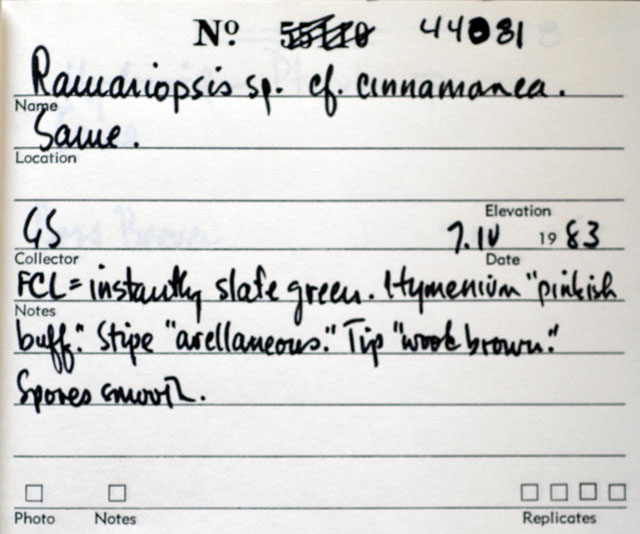 Nº 55110 44081
Ramariopsis sp. cf. cinnamomea.
Name
Same.
Location
Elevation
GS 7.IV 19 83
Collector Date
FCL = instantly slate green. Hymenium "pinkish
Notes
buff." Stipe "avellaneous." Tip "wood brown."
Spores smooth.
Photo Notes Replicates